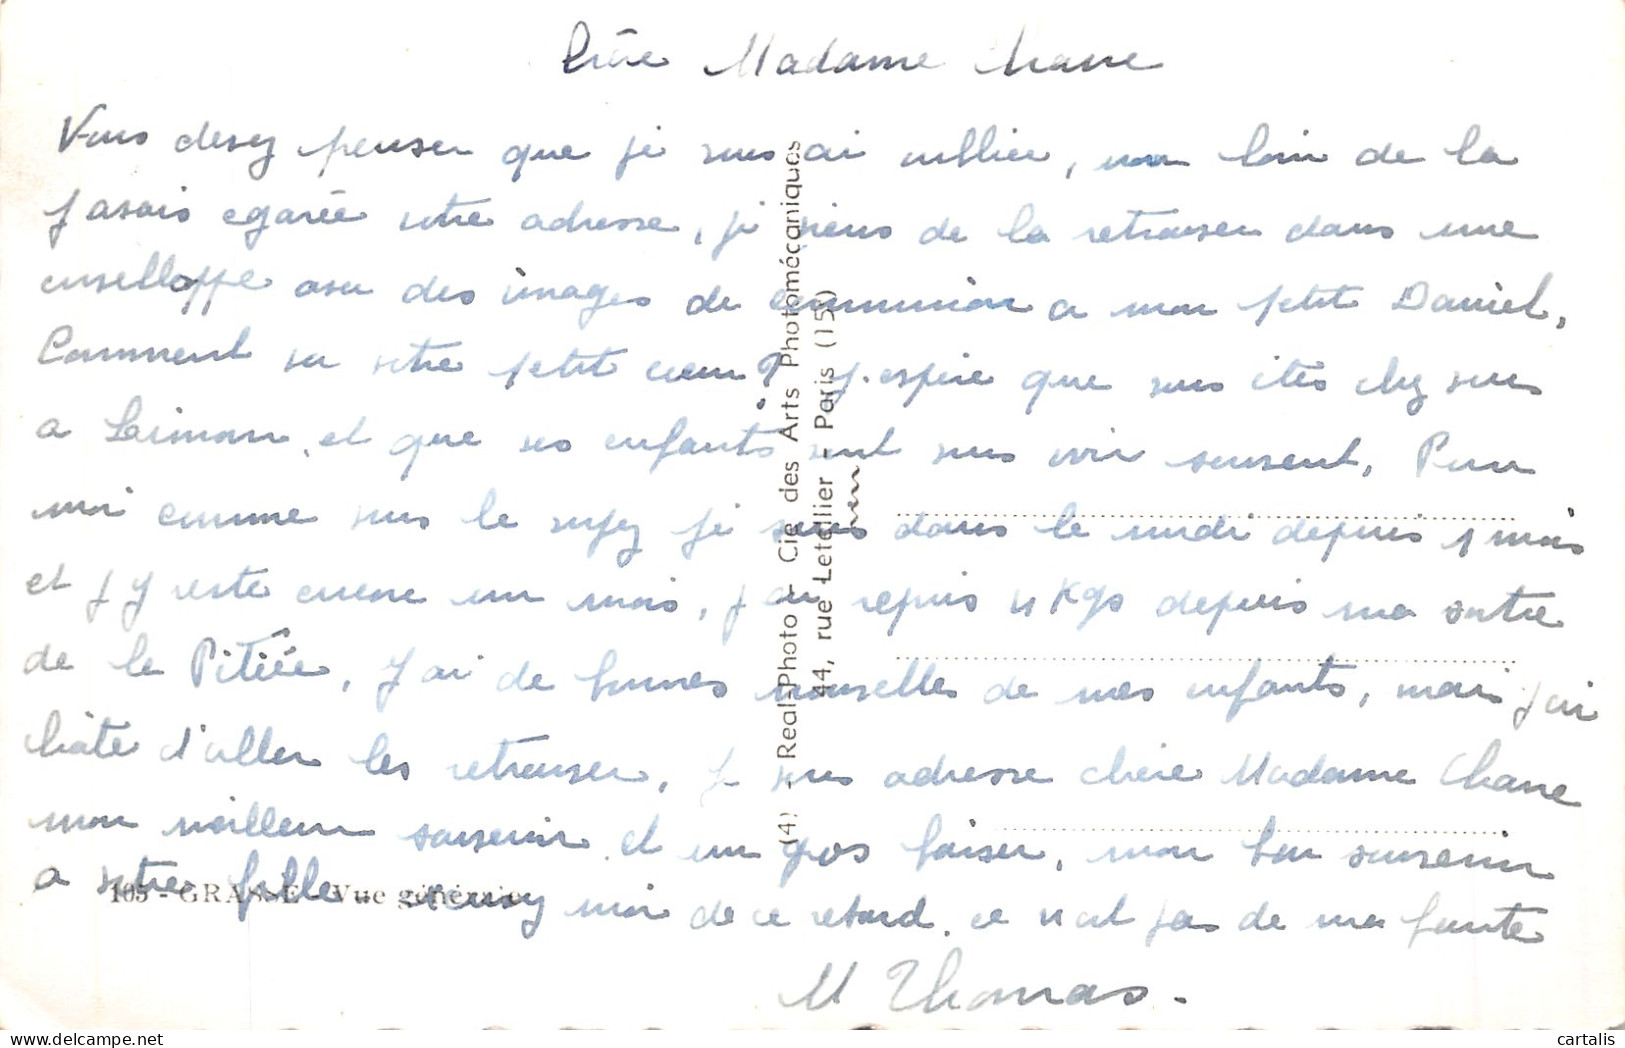 Chère Madame Chane
Vous devez penser que je vous ai oubliée, non loin de la
j avais egarée votre adresse, je viens de la retrouver dans une
envelloppe avec des images de communion a mon petit Daniel,
Comment va votre petit cœur ? j. espère que vous étes chez vous
a et que vos enfants vont vous voir souvent, Pour
moi comme vous le voyez je suis dans le midi depuis 1 mois
et j y reste encore un mois, j ai repris 4 Kgs depuis ma sortie
de la Pitiée, J ai de bonnes nouvelles de mes enfants, mais j ai
hâte d'aller les retrouver, Je vous adresse chère Madame Chane
mon meilleur souvenir et un gros baiser, mon bon souvenir
a votre fille excusez moi de ce retard. ce n est pas de ma faute
M Thomas.
105 - GRASSE - Vue générale
(4) - Real-Photo - Cie des Arts Photomécaniques
44, rue Letellier - Paris (15e)
cartalis